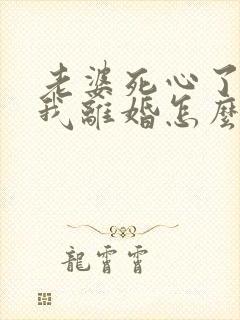 老婆死心了
我離婚怎麼
龍霄霄